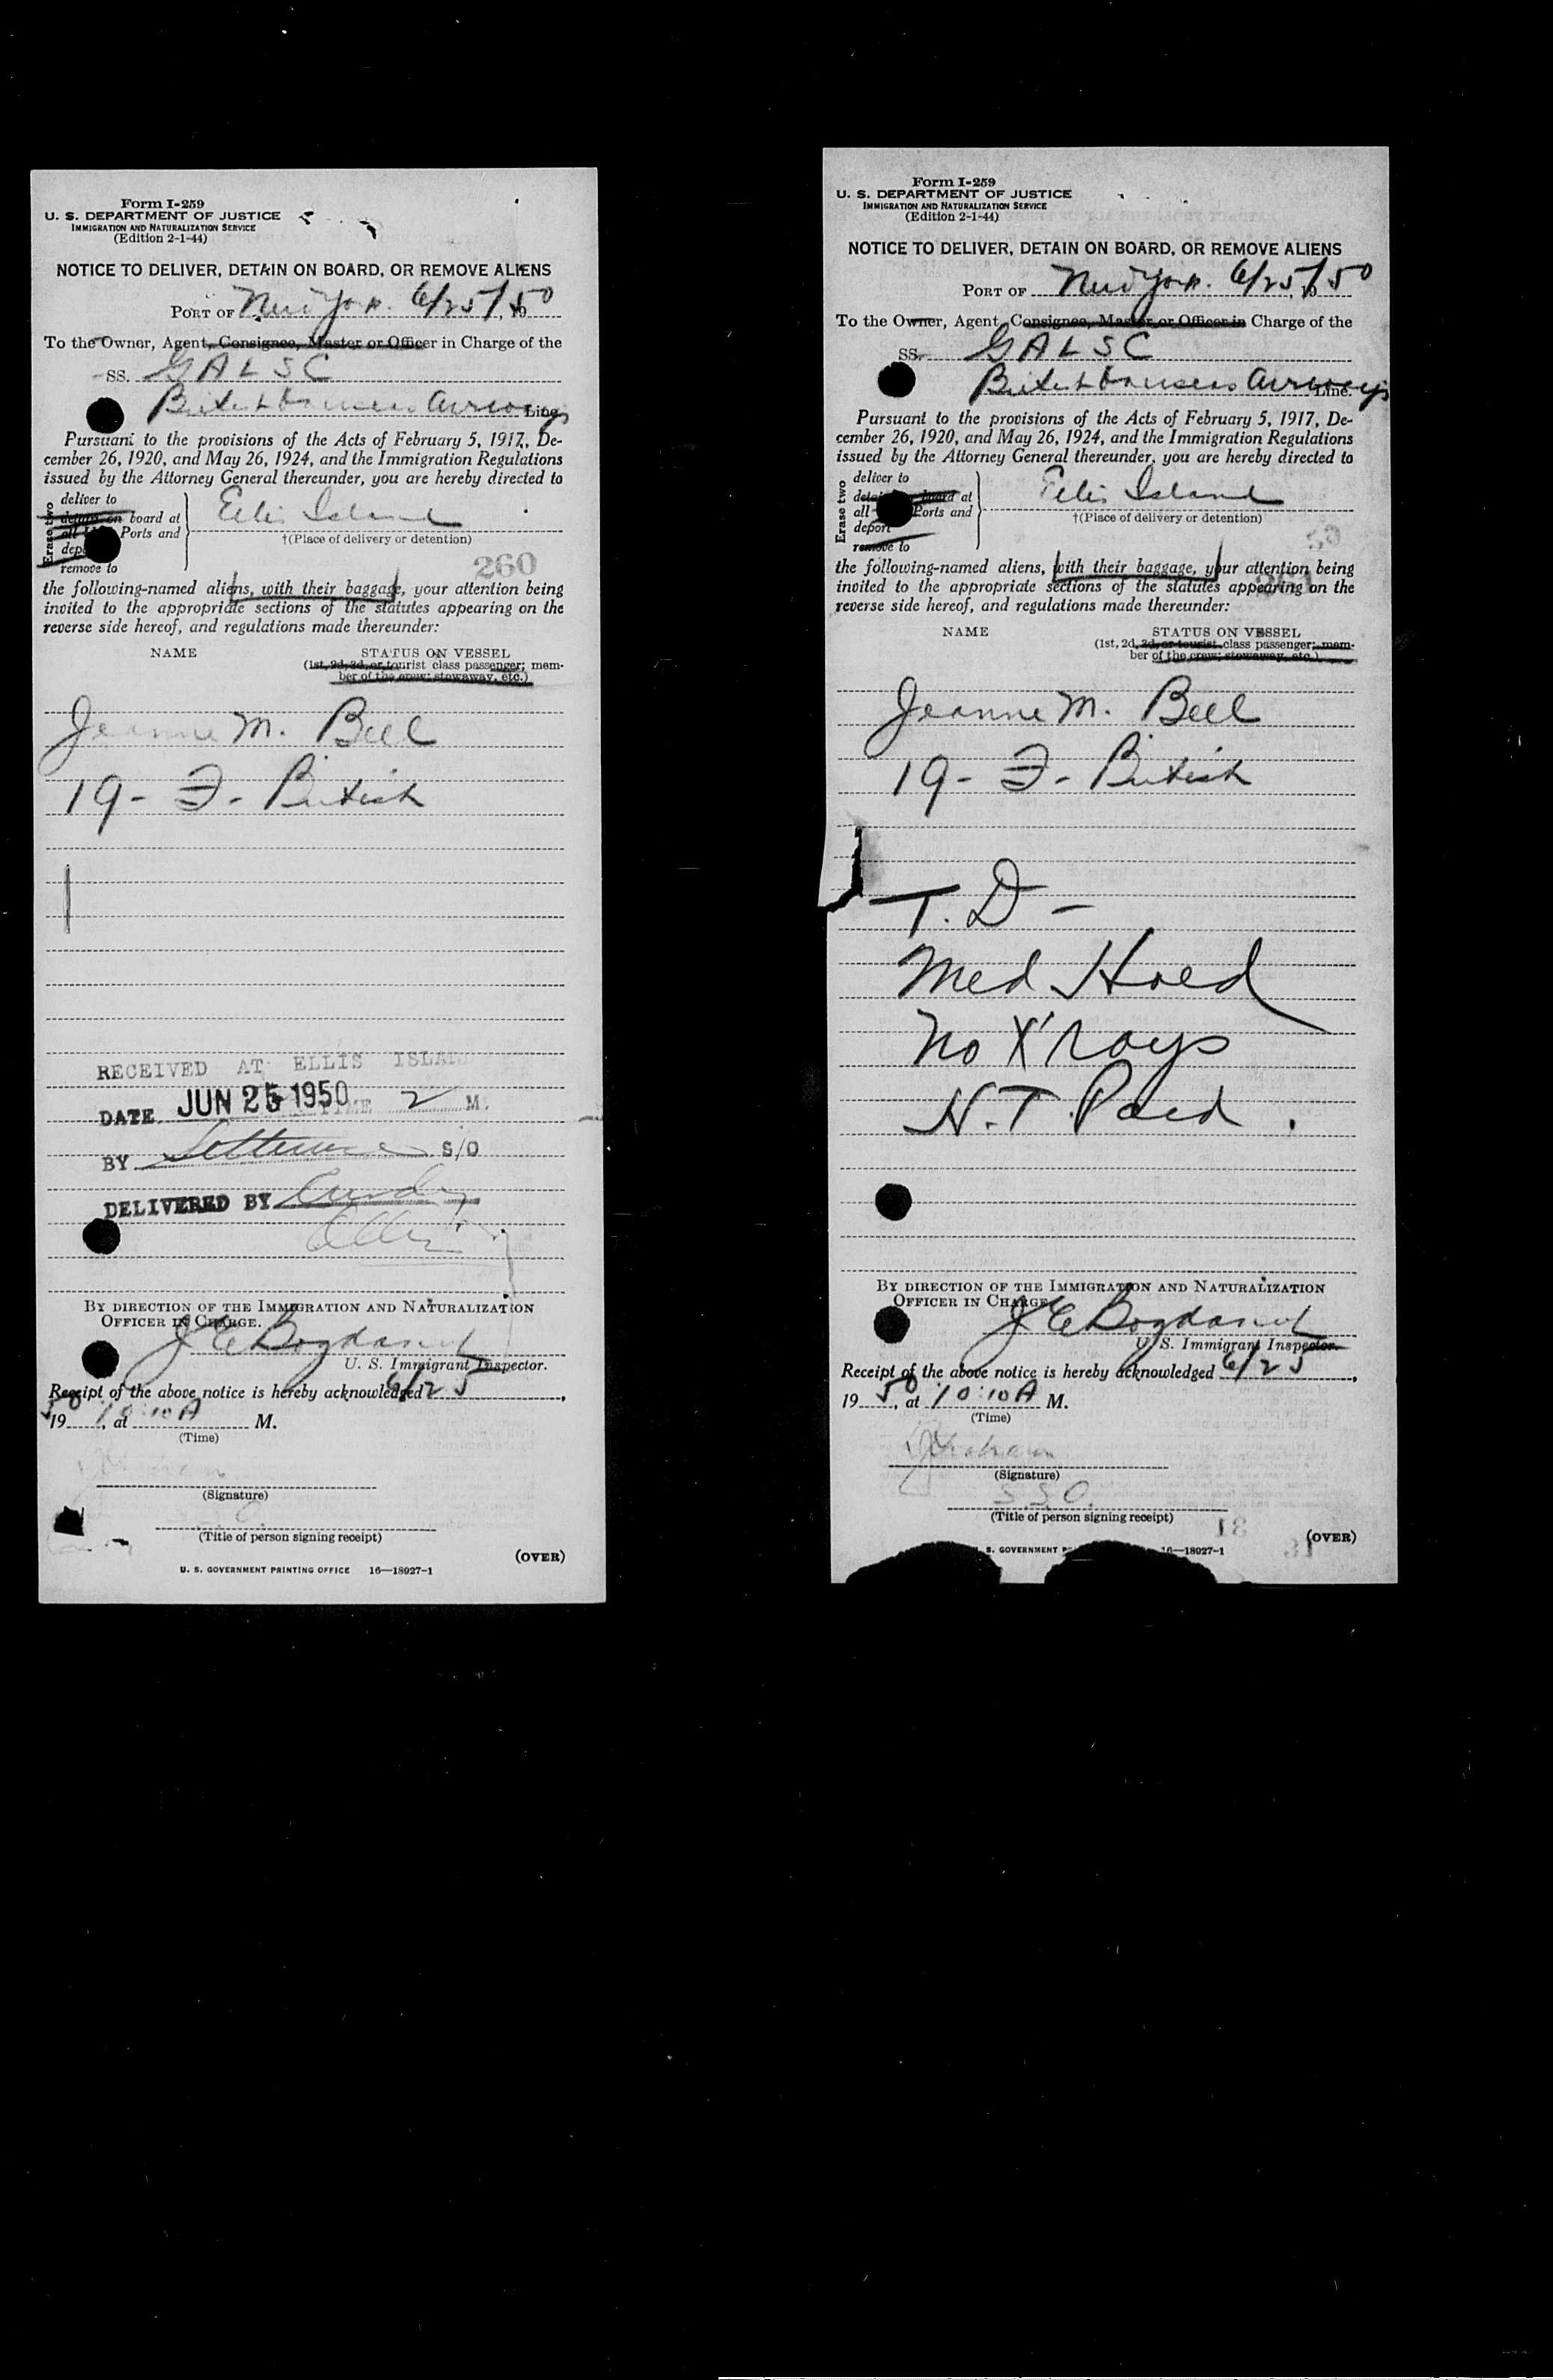 Form I-259
U. S. DEPARTMENT OF JUSTICE
IMMIGRATION AND NATURALIZATION SERVICE
(Edition 2-1-44)
NOTICE TO DELIVER, DETAIN ON BOARD, OR REMOVE ALIENS
PORT OF New York. 6/25/50, 19
To the Owner, Agent, Consignee, Master or Officer in Charge of the
SS. GALSC
British Overseas Airways Line.
Pursuant to the provisions of the Acts of February 5, 1917, De-
cember 26, 1920, and May 26, 1924, and the Immigration Regulations
issued by the Attorney General thereunder, you are hereby directed to
Erase two
deliver to
detain on board at
all Ports and
remove to
Ellis Island
†(Place of delivery or detention)
260
the following-named aliens, with their baggage, your attention being
invited to the appropriate sections of the statutes appearing on the
reverse side hereof, and regulations made thereunder:
NAME STATUS ON VESSEL
(1st, 2d, 3d, or tourist class passenger; mem-
ber of the crew; stowaway, etc.)
Jeanne M. Bell
19 - F - British
RECEIVED AT ELLIS ISLAND
DATE JUN 25 1950 TIME 2 M.
BY S/O
DELIVERED BY
BY DIRECTION OF THE IMMIGRATION AND NATURALIZATION
OFFICER IN CHARGE.
J E Bogdan
U. S. Immigrant Inspector.
Receipt of the above notice is hereby acknowledged 6/25,
1950, at 10:10 A M.
(Time)
(Signature)
(Title of person signing receipt)
(OVER)
U. S. GOVERNMENT PRINTING OFFICE 16—18027-1
Form I-259
U. S. DEPARTMENT OF JUSTICE
IMMIGRATION AND NATURALIZATION SERVICE
(Edition 2-1-44)
NOTICE TO DELIVER, DETAIN ON BOARD, OR REMOVE ALIENS
PORT OF New York. 6/25/50, 19
To the Owner, Agent, Consignee, Master or Officer in Charge of the
SS. GALSC
British Overseas Airways Line.
Pursuant to the provisions of the Acts of February 5, 1917, De-
cember 26, 1920, and May 26, 1924, and the Immigration Regulations
issued by the Attorney General thereunder, you are hereby directed to
Erase two
deliver to
board at
all Ports and
deport
remove to
Ellis Island
†(Place of delivery or detention)
the following-named aliens, with their baggage, your attention being
invited to the appropriate sections of the statutes appearing on the
reverse side hereof, and regulations made thereunder:
NAME STATUS ON VESSEL
(1st, 2d, 3d, or tourist class passenger; mem-
ber of the crew; stowaway, etc.)
Jeanne M. Bell
19 - F - British
T. D -
Med Hold
No X'rays
H.T. Paid.
BY DIRECTION OF THE IMMIGRATION AND NATURALIZATION
OFFICER IN CHARGE
J E Bogdan
U. S. Immigrant Inspector.
Receipt of the above notice is hereby acknowledged 6/25,
1950, at 10:10 A M.
(Time)
(Signature)
S.S.O.
(Title of person signing receipt)
31
(OVER)
S. GOVERNMENT 16—18027-1